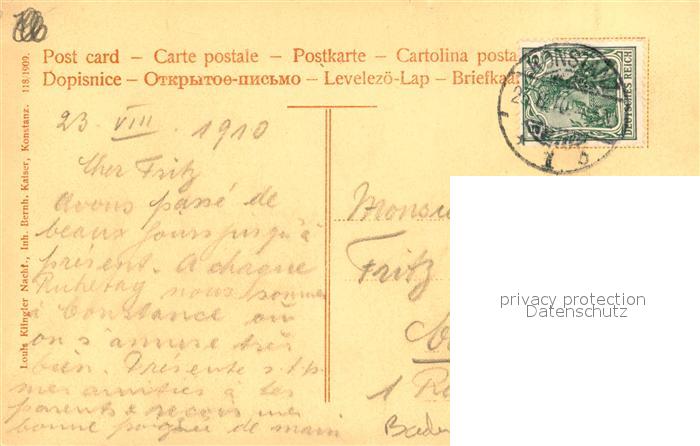 Post card – Carte postale – Postkarte – Cartolina posta
Dopisnice – Открытое-письмо – Levelező-Lap – Briefkaa
Louis Klingler Nachf., Inh. Bernh. Kaiser, Konstanz. 118/1909.
KONSTANZ
DEUTSCHES REICH
23. VIII. 1910
Cher Fritz
Avons passé de
beaux jours jusqu'à
présent. A chaque
Ruhetag nous sommes
à Constance où
on s'amuse très
bien. Présente s.t.p.
mes amitiés à tes
parents & reçois une
bonne poignée de main
Monsieu
Fritz
1
Baden
privacy protection
Datenschutz